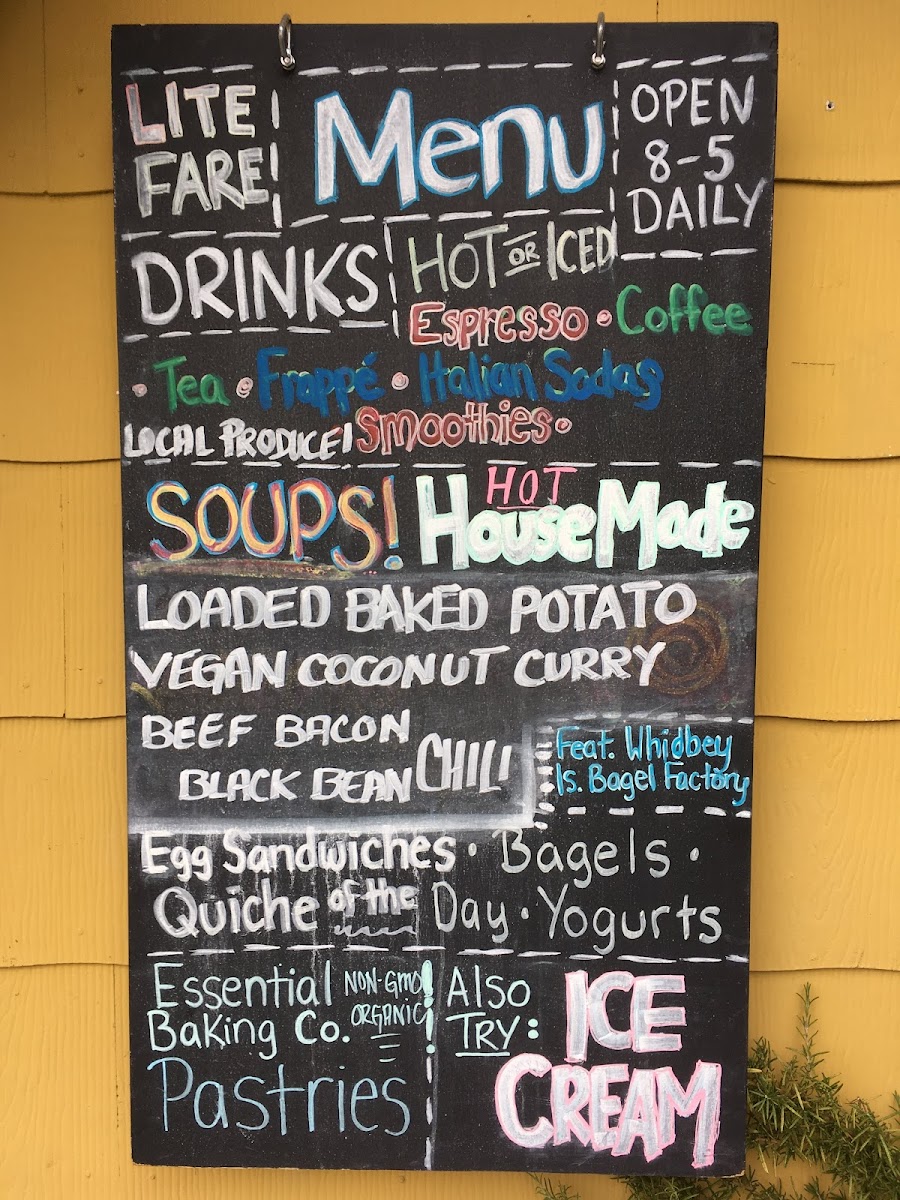 LITE
FARE
Menu
OPEN
8-5
DAILY
DRINKS
HOT OR ICED
Espresso • Coffee
• Tea • Frappé • Italian Sodas
LOCAL PRODUCE! Smoothies •
SOUPS! HOT
HouseMade
LOADED BAKED POTATO
VEGAN COCONUT CURRY
BEEF BACON
BLACK BEAN CHILI
Feat. Whidbey
Is. Bagel Factory
Egg Sandwiches • Bagels •
Quiche of the Day • Yogurts
Essential
Baking Co.
NON-GMO
ORGANIC!
Pastries
Also
TRY:
ICE
CREAM